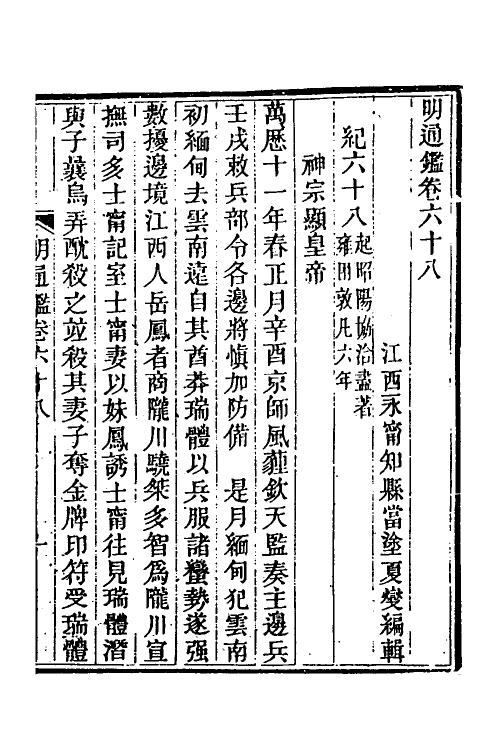 明通鑑卷六十八
江西永甯知縣當塗夏燮編輯
紀六十八起昭陽協洽盡著
雍困敦凡六年
神宗顯皇帝
萬歷十一年春正月辛酉京師風霾欽天監奏主邊兵
壬戌敕兵部令各邊將慎加防備　是月緬甸犯雲南
初緬甸去雲南遠自其酋莽瑞體以兵服諸蠻勢遂强
數擾邊境江西人岳鳳者商隴川驍桀多智爲隴川宣
撫司多士甯記室士甯妻以妹鳳誘士甯往見瑞體潛
與子曩烏弄酖殺之並殺其妻子奪金牌印符受瑞體
明通鑑卷六十八
一